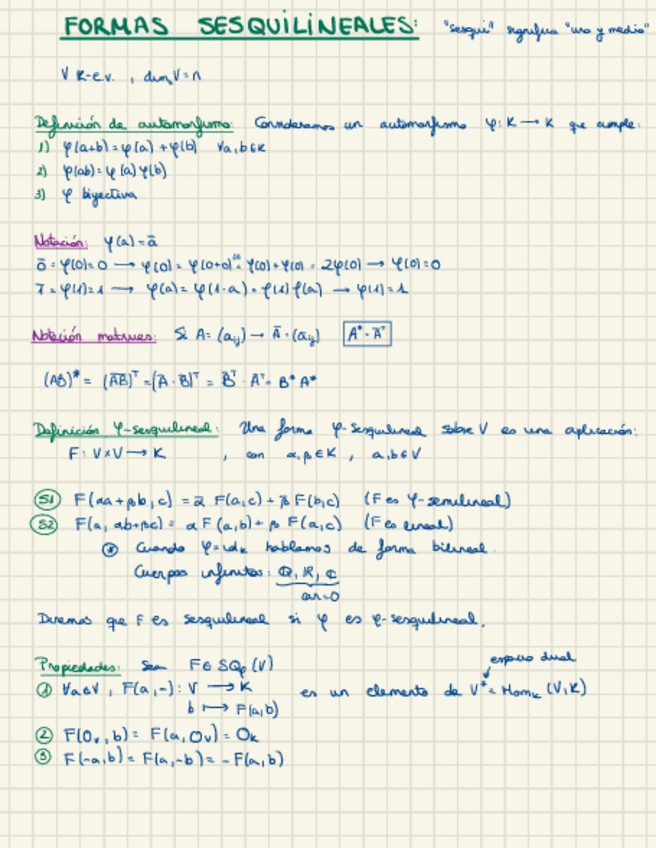 FORMAS SESQUILINEALES: "sesqui" significa "uno y medio"
V K-e.v. , dim V = n
Definición de automorfismo: Consideramos un automorfismo φ: K → K que cumple:
1) φ(a+b) = φ(a) + φ(b) ∀a,b∈K
2) φ(ab) = φ(a) φ(b)
3) φ biyectiva
Notación: φ(a) = ā
0̄ = φ(0) = 0 → φ(0) = φ(0+0) = φ(0) + φ(0) = 2φ(0) → φ(0) = 0
1̄ = φ(1) = 1 → φ(a) = φ(1·a) = φ(1) φ(a) → φ(1) = 1
Notación matrices: Si A = (aᵢⱼ) → Ā = (āᵢⱼ) A* = Āᵀ
(AB)* = (A̅B̅)ᵀ = (Ā · B̄)ᵀ = B̄ᵀ · Āᵀ = B* A*
Definición φ-sesquilineal: Una forma φ-sesquilineal sobre V es una aplicación:
F: V×V → K , con α,β∈K , a,b∈V
S1 F(αa+βb,c) = ᾱ F(a,c) + β̄ F(b,c) (F es φ-semilineal)
S2 F(a, αb+βc) = α F(a,b) + β F(a,c) (F es lineal)
Cuando φ = id_K hablamos de forma bilineal.
Cuerpos infinitos: ℚ, ℝ, ℂ
car = 0
Diremos que F es sesquilineal si φ es φ-sesquilineal.
espacio dual
Propiedades: Sean F∈SQφ(V)
① ∀a∈V, F(a,-): V → K es un elemento de V* = Hom_K (V,K)
b ↦ F(a,b)
② F(0ᵥ, b) = F(a, 0ᵥ) = 0_K
③ F(-a,b) = F(a,-b) = -F(a,b)